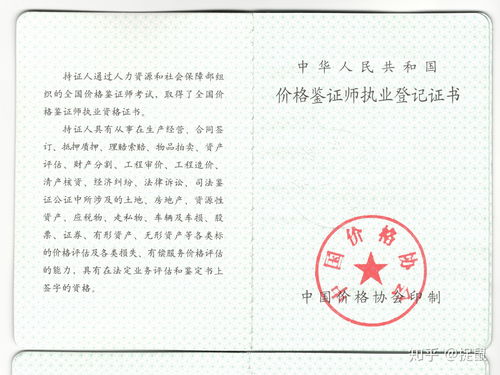 持证人通过人力资源和社会保障部组
织的全国价格鉴证师考试、取得了全国价
格鉴证师执业资格证书。
持证人具有从事在生产经营、合同签
订、抵押质押、理赔索赔、物品拍卖、资产
评估、财产分割、工程审价、工程造价、
清产核资、经济纠纷、法律诉讼、司法鉴
证公证中所涉及的土地、房地产、资源性
资产、应税物、走私物、车辆及车损、股
票、证券、有形资产、无形资产等各类标
的价格评估及各类损失、有偿服务价格评估
的能力,具有在法定业务评估和鉴定书上
签字的资格。
中华人民共和国
价格鉴证师执业登记证书
中国价格协会
中国价格协会印制
知乎 @捉鼠